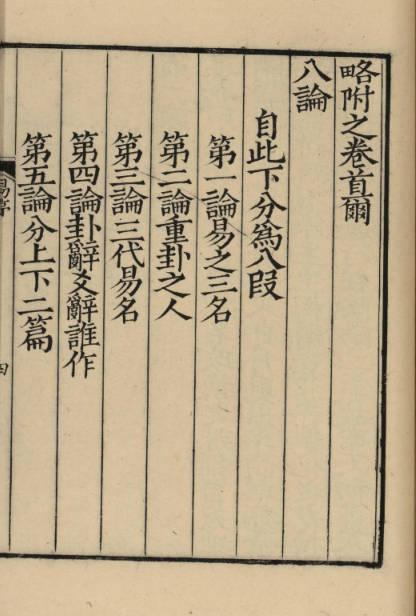 略附之卷首爾
八論
自此下分為八段
第一論易之三名
第二論重卦之人
第三論三代易名
第四論卦辭爻辭誰作
第五論分上下二篇
易序
四